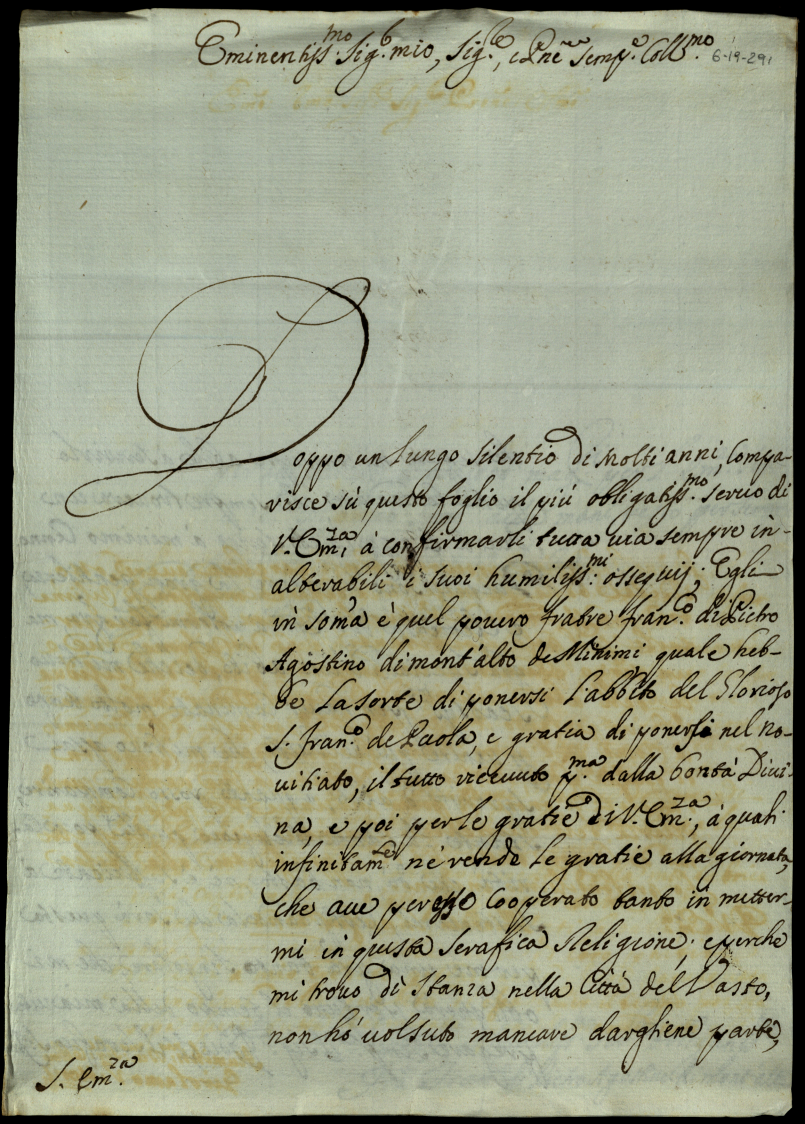 Eminentiss.mo Sig.r mio, Sig.re, e Pne sempre Coll.mo
6-19-291
Doppo un lungo silentio di molti anni, Compa-
risce sù questo foglio il più obligatiss.mo servo di
V. Em.za, à confirmarli tutta via sempre in-
alterabili i suoi humiliss.mi ossequij; Egli
in soma è quel povero fratre Fran.o di Pietro
Agostino di mont'alto de Minimi quale heb-
be La sorte di ponersi l'abbito del Glorioso
S. Fran.o de Paola, e gratia di ponersi nel no-
vitiato, il tutto ricevuto p.ma dalla bontà Divi-
na, e poi per le gratie di V. Em.za, à quali
infinitam.te ne rende le gratie alla giornata,
che ave per esso Cooperato tanto in metter-
mi in questa Serafica Religione; e perche
mi trovo di stanza nella Città del Vasto,
non hò volsuto mancare dargliene parte,
S. Em.za